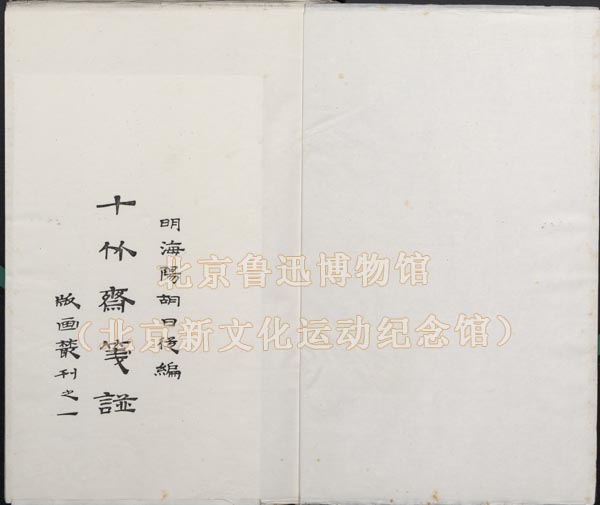 明海陽胡曰從編
十竹齋箋譜
版画叢刊之一
北京鲁迅博物馆
（北京新文化运动纪念馆）